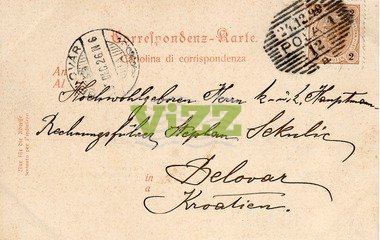 Correspondenz-Karte.
Cartolina di corrispondenza
24.12.99
POLA 1
12
2
An
Al
Hochwohlgeboren Herrn k. u. k. Hauptmann
Rechnungsführer Stephan Sekulic
vizz
in
a
Belovar
Kroatien.
Nur für die Adresse